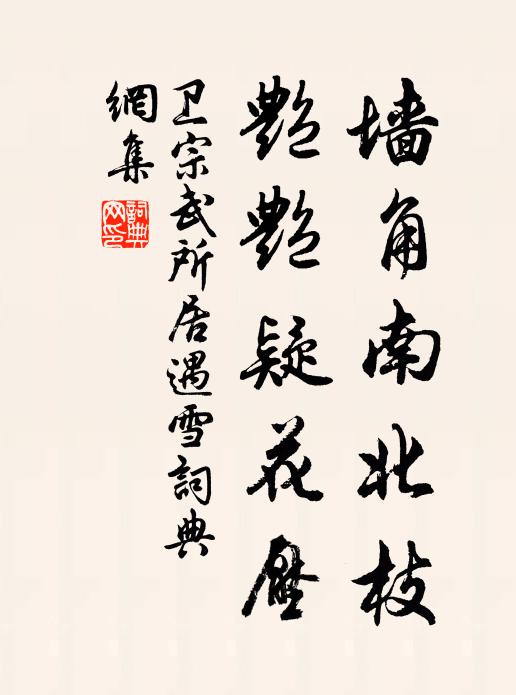 墙角南北枝
艷艷疑花壓
卫宗武所居遇雪詞典
網集
詞典網印